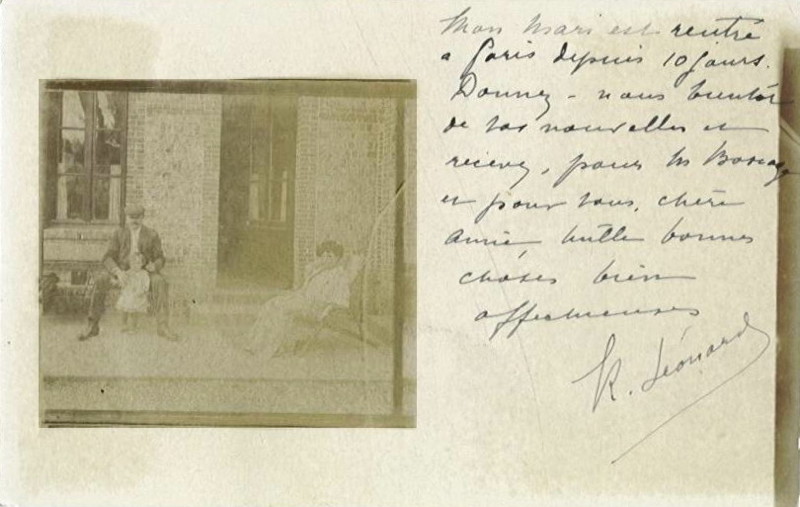 Mon mari est rentré
a Paris depuis 10 jours.
Donnez-nous bientôt
de vos nouvelles et
recevez, pour Mr
et pour vous, chère
amie mille bonnes
choses bien
affectueuses
K. Léonard